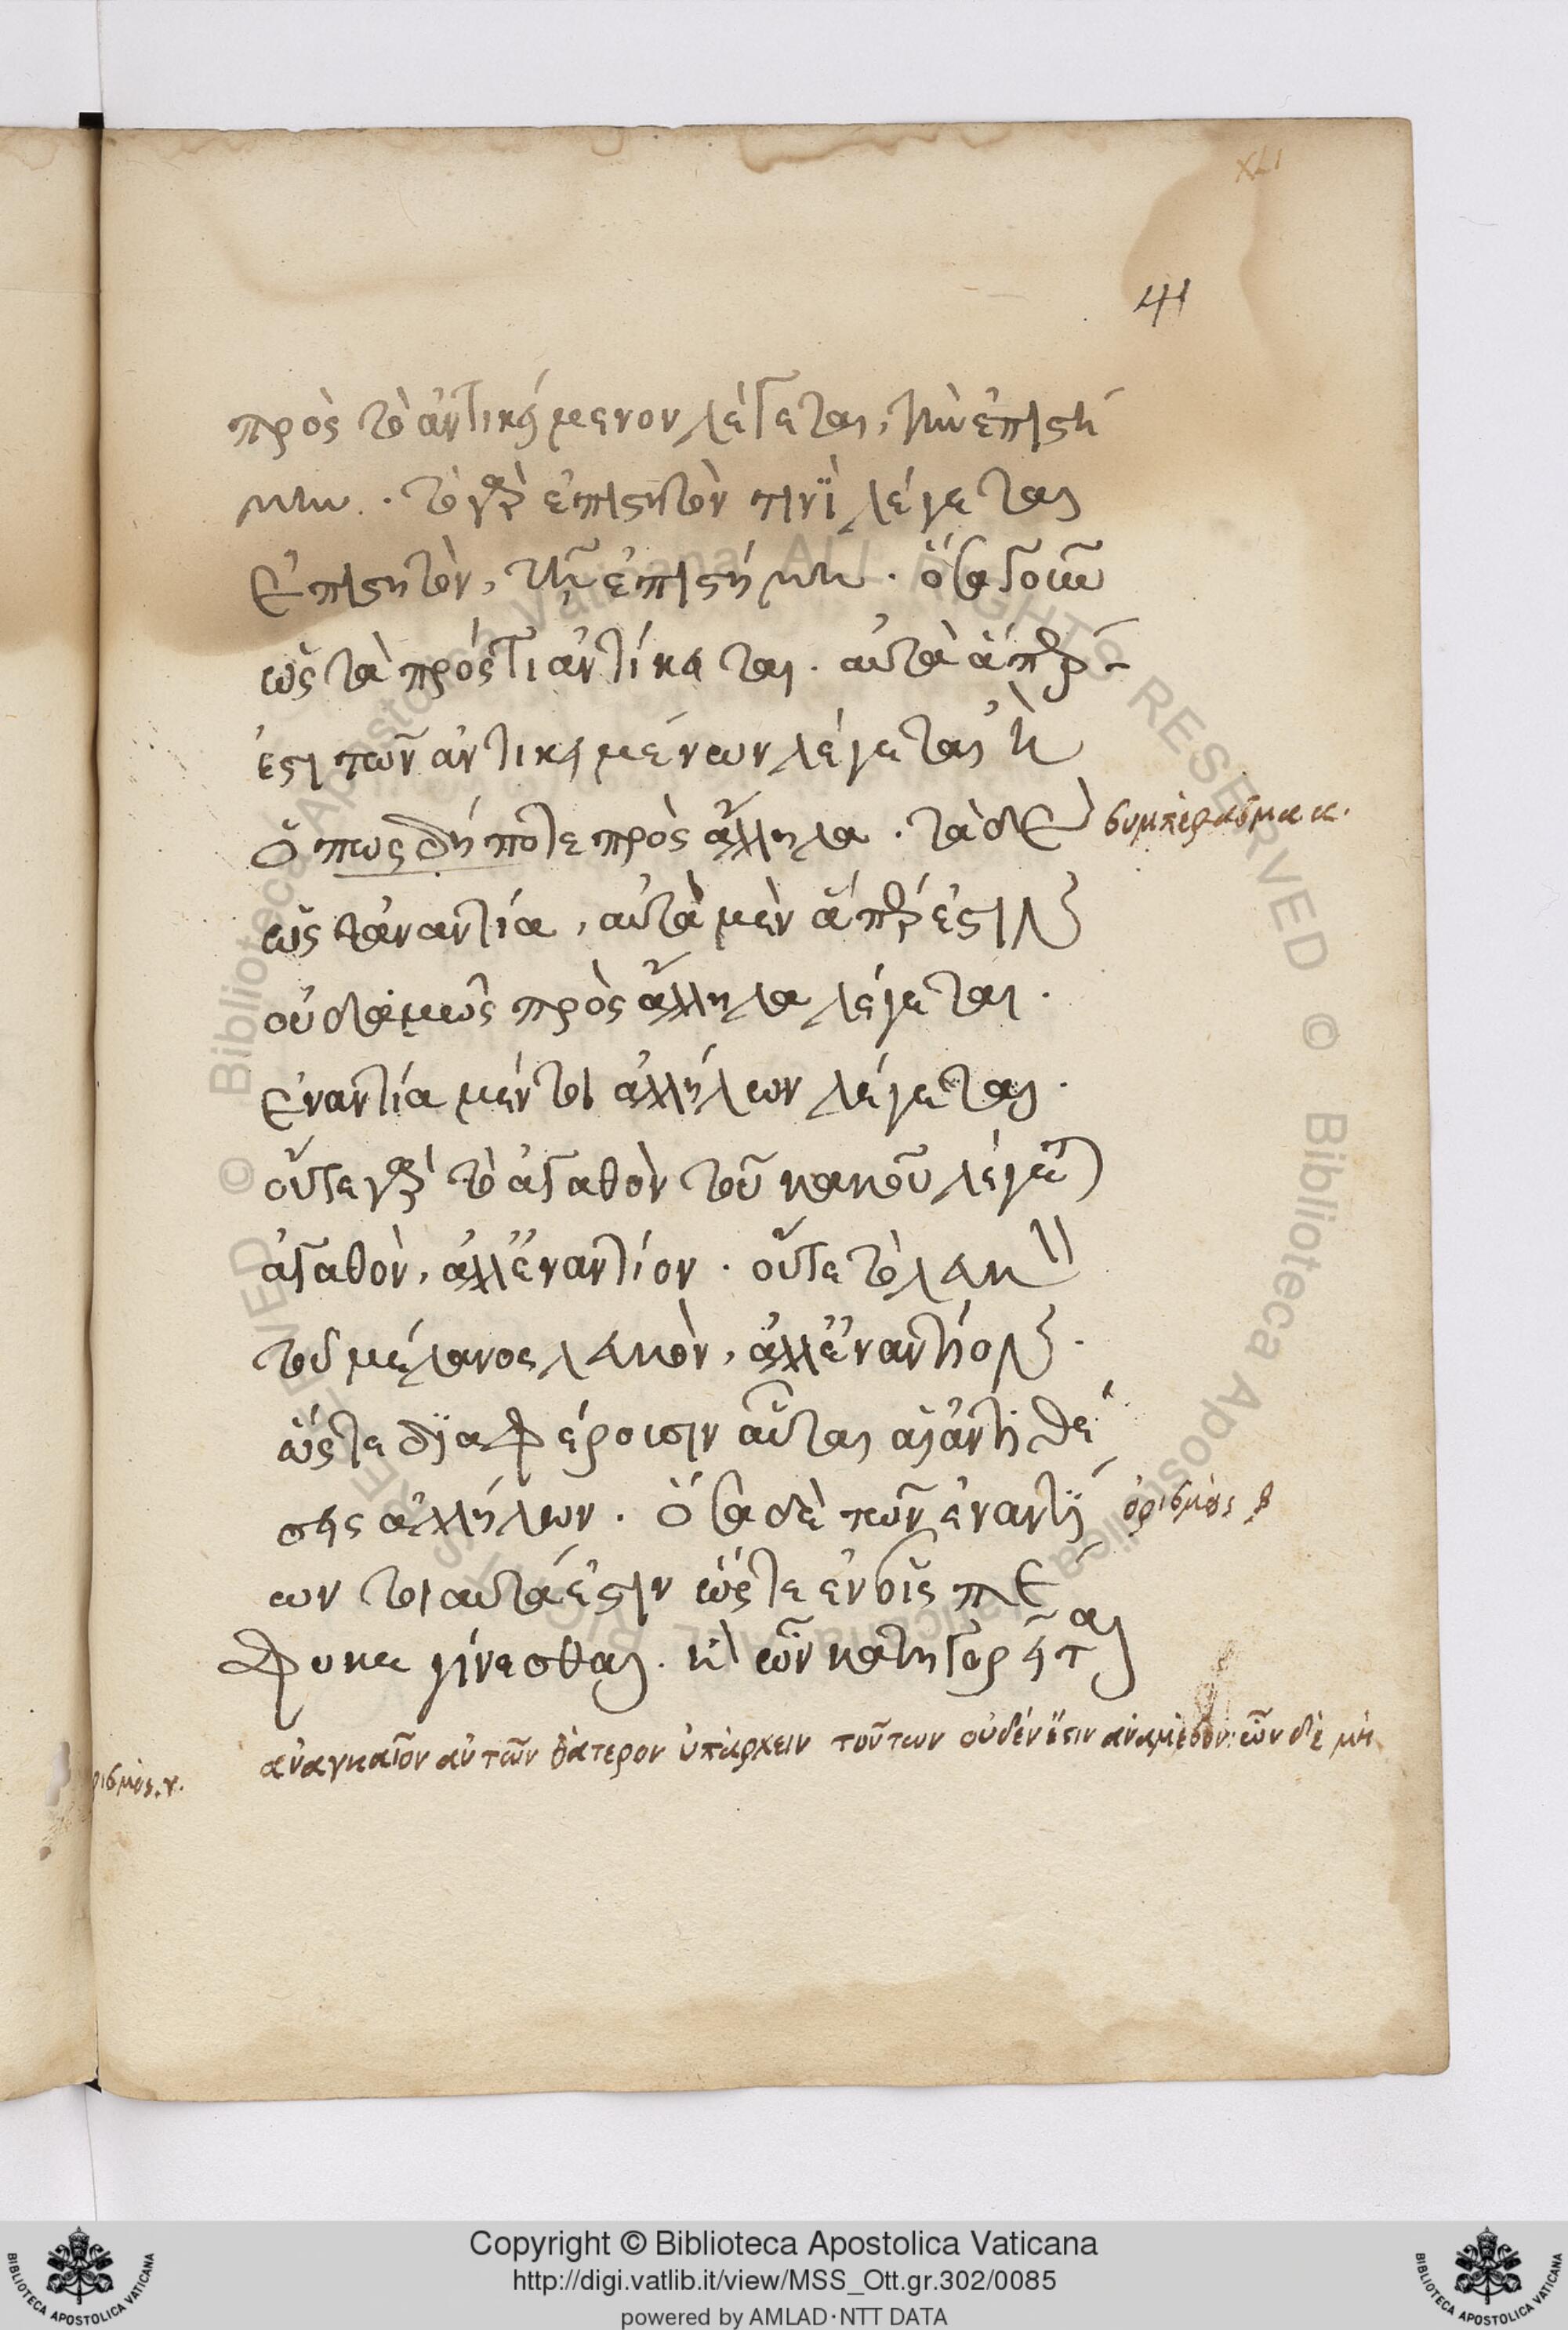 XLI
41
πρὸς τὸ ἀντικείμενον λέγεται, τὴν ἐπιστή
μην . τὸ γὰρ ἐπιστητὸν τινὶ λέγεται
ἐπιστητὸν, τῇ ἐπιστήμῃ . ὅσα γοῦν
ὡς τὰ πρός τι ἀντίκειται . αὐτὰ ἅπερ
ἐστι τῶν ἀντικειμένων λέγεται ἢ
ὅπως δή ποτε πρὸς ἄλληλα . τὰ δὲ
συμπέρασμα α.
ὡς τἀναντία , αὐτὰ μὲν ἅπερ ἐστὶν
οὐδαμῶς πρὸς ἄλληλα λέγεται .
ἐναντία μέντοι ἀλλήλων λέγεται .
οὔτε γὰρ τὸ ἀγαθὸν τοῦ κακοῦ λέγεται
ἀγαθὸν, ἀλλ' ἐναντίον . οὔτε τὸ λευκὸν
τοῦ μέλανος λευκὸν, ἀλλ' ἐναντίον .
ὥστε διαφέρουσιν αὗται αἱ ἀντιθέ
σεις ἀλλήλων . ὅσα δὲ τῶν ἐναντί
ὁρισμὸς β
ων τοιαῦτά ἐστιν ὥστε ἐν οἷς πέ
φυκε γίνεσθαι . καὶ ὧν κατηγορεῖται
ἀναγκαῖον αὐτῶν θάτερον ὑπάρχειν τούτων οὐδέν ἐστιν ἀνάμεσον: ὧν δὲ μὴ
ρισμὸς.γ.
Copyright © Biblioteca Apostolica Vaticana
http://digi.vatlib.it/view/MSS_Ott.gr.302/0085
powered by AMLAD·NTT DATA